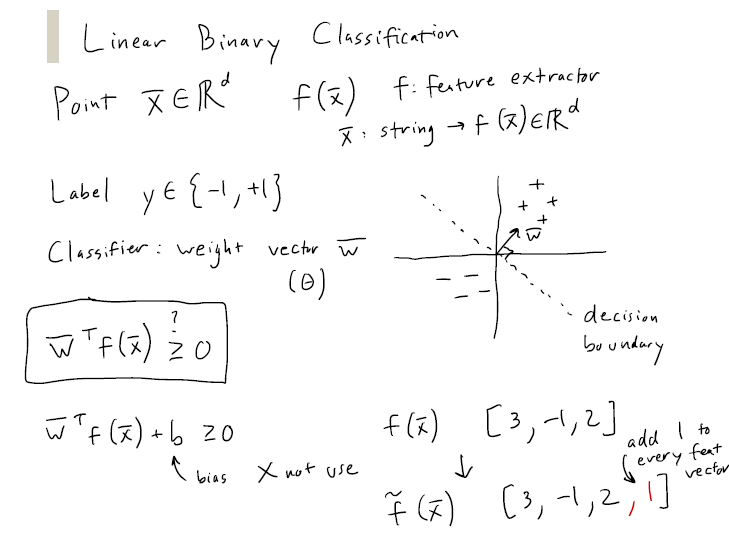 Linear Binary Classification
Point x̄ ∈ ℝᵈ f(x̄) f: feature extractor
x̄: string → f(x̄) ∈ ℝᵈ
Label y ∈ {-1, +1}
Classifier: weight vector w̄
(θ)
+
+ +
+
w̄
- - -
- -
decision
boundary
?
w̄ᵀf(x̄) ≥ 0
w̄ᵀf(x̄) + b ≥ 0
↑ bias X not use
f(x̄) [3, -1, 2]
add 1 to
every feat
vector
↓
f̃(x̄) [3, -1, 2, 1]